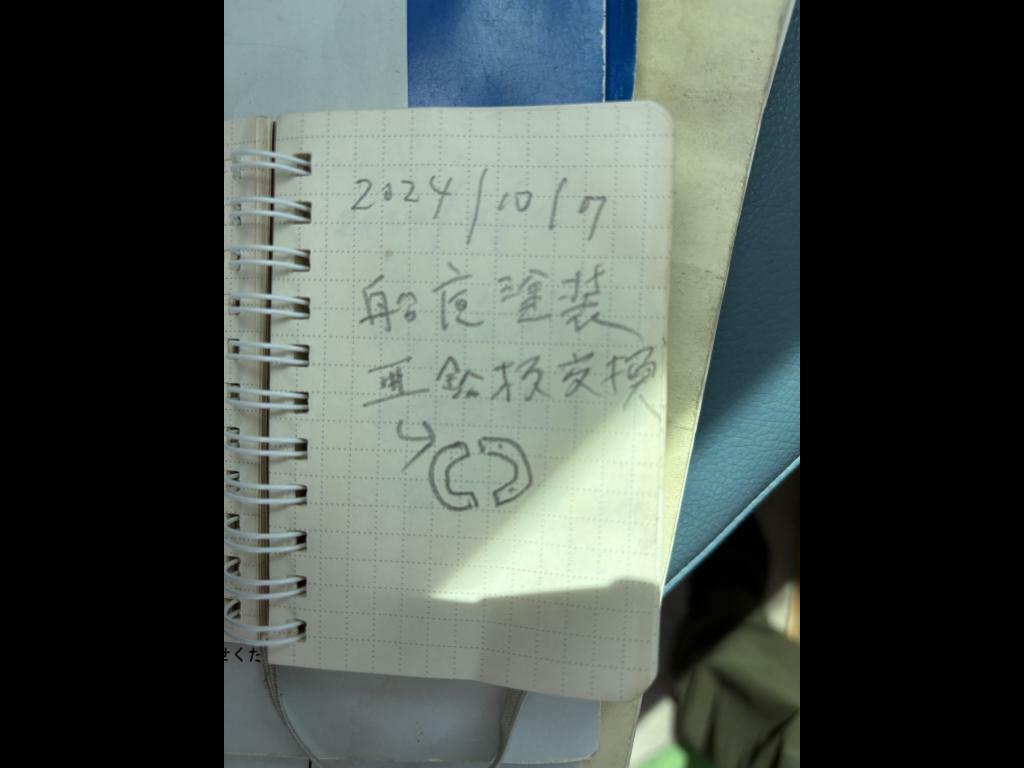 2024/10/7
船底塗装
亜鉛損交換
せくだ